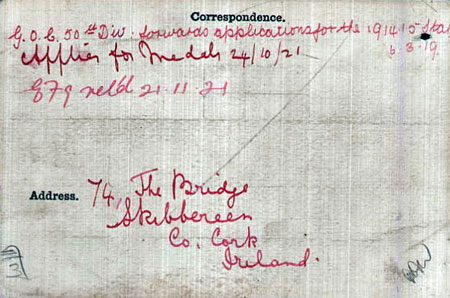 Correspondence.
G.O.C. 50th Div: forwards applications for the 1914.15 Star
6.3.19.
Applies for Medals 24/10/21
retd 21.11.21
Address. 74, The Bridge
Skibbereen
Co. Cork
Ireland.